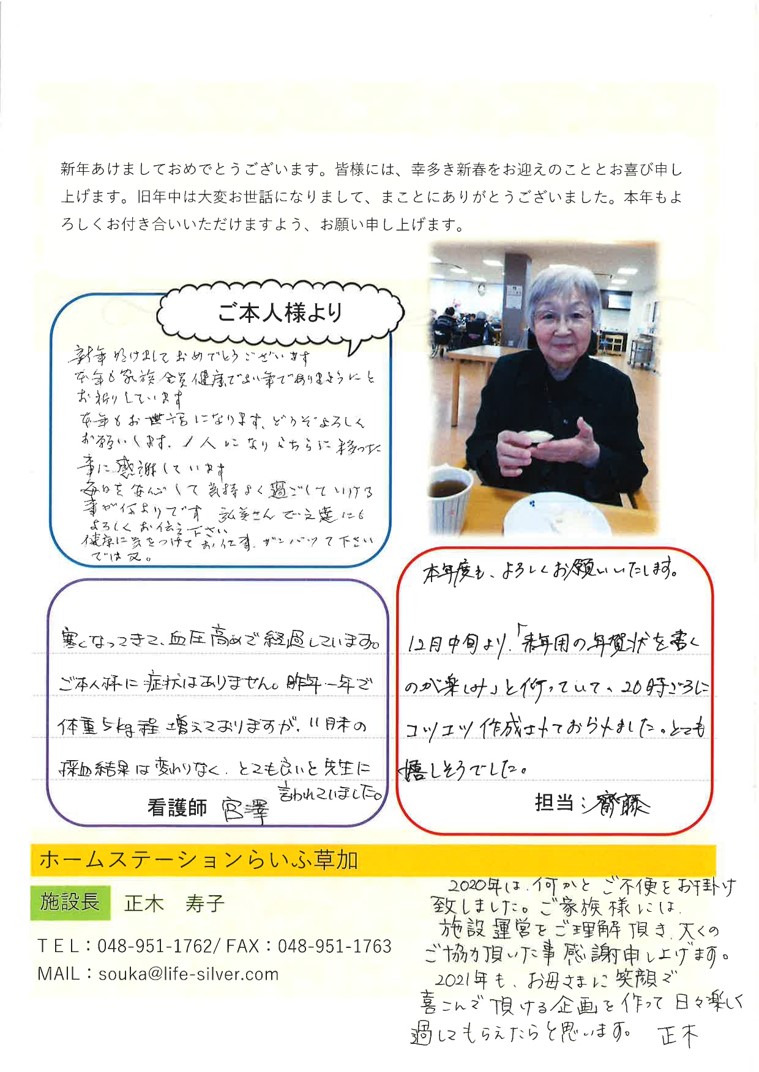 新年あけましておめでとうございます。皆様には、幸多き新春をお迎えのこととお喜び申し
上げます。旧年中は大変お世話になりまして、まことにありがとうございました。本年もよ
ろしくお付き合いいただけますよう、お願い申し上げます。
ご本人様より
新年明けましておめでとうございます
本年も家族全員健康でよい年でありますようにと
お祈りしています
本年もお世話になります、どうぞよろしく
お願いします、1人になりこちらに移った
事に感謝しています
毎日を安心して気持よく過ごしていける
事が何よりです 弘美さん
よろしくお伝え下さい
健康に気をつけてお仕事、ガンバッて下さい
では又。
寒くなってきて、血圧高めで経過しています。
ご本人様に症状はありません。昨年一年で
体重5kg程増えておりますが、11月末の
採血結果は変わりなく、とても良いと先生に
言われていました。
看護師 宮澤
本年度も、よろしくお願いいたします。
12月中旬より、「来年用の年賀状を書く
のが楽しみ」と仰っていて、20時ごろに
コツコツ作成されておられました。とても
嬉しそうでした。
担当：齋藤
ホームステーションらいふ草加
施設長 正木 寿子
TEL：048-951-1762/ FAX：048-951-1763
MAIL：souka@life-silver.com
2020年は、何かとご不便をお掛け
致しました。ご家族様には、
施設運営をご理解頂き、多くの
ご協力頂いた事感謝申し上げます。
2021年も、お母さまに笑顔で
喜こんで頂ける企画を作って日々楽しく
過してもらえたらと思います。 正木